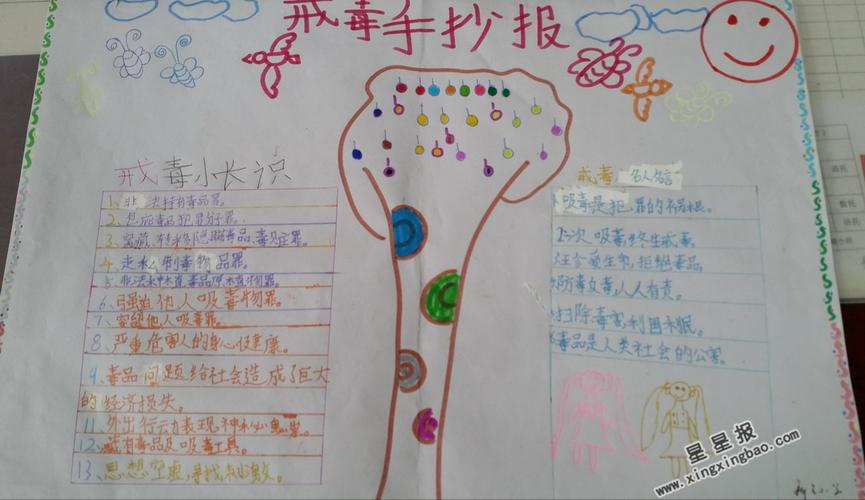 戒毒手抄报
戒毒小长识
1、非法持有毒品罪。
2、包庇毒品犯罪分子罪。
3、窝藏、转移、隐瞒毒品、毒赃罪。
4、走私制毒物品罪。
6、强迫他人吸毒物罪。
7、容留他人吸毒罪。
8、严重危害人的身心健康。
9、毒品问题给社会造成了巨大
的经济损失。
11、外出行动表现神秘鬼祟。
12、藏有毒品及吸毒工具。
13、思想空虚,寻找刺激。
戒毒名人名言
吸毒是犯罪的祸根。
一次吸毒,终生戒毒。
珍爱生命,拒绝毒品
防毒反毒,人人有责。
扫除毒害,利国利民。
毒品是人类社会的公害。
星星报
www.xingxingbao.com